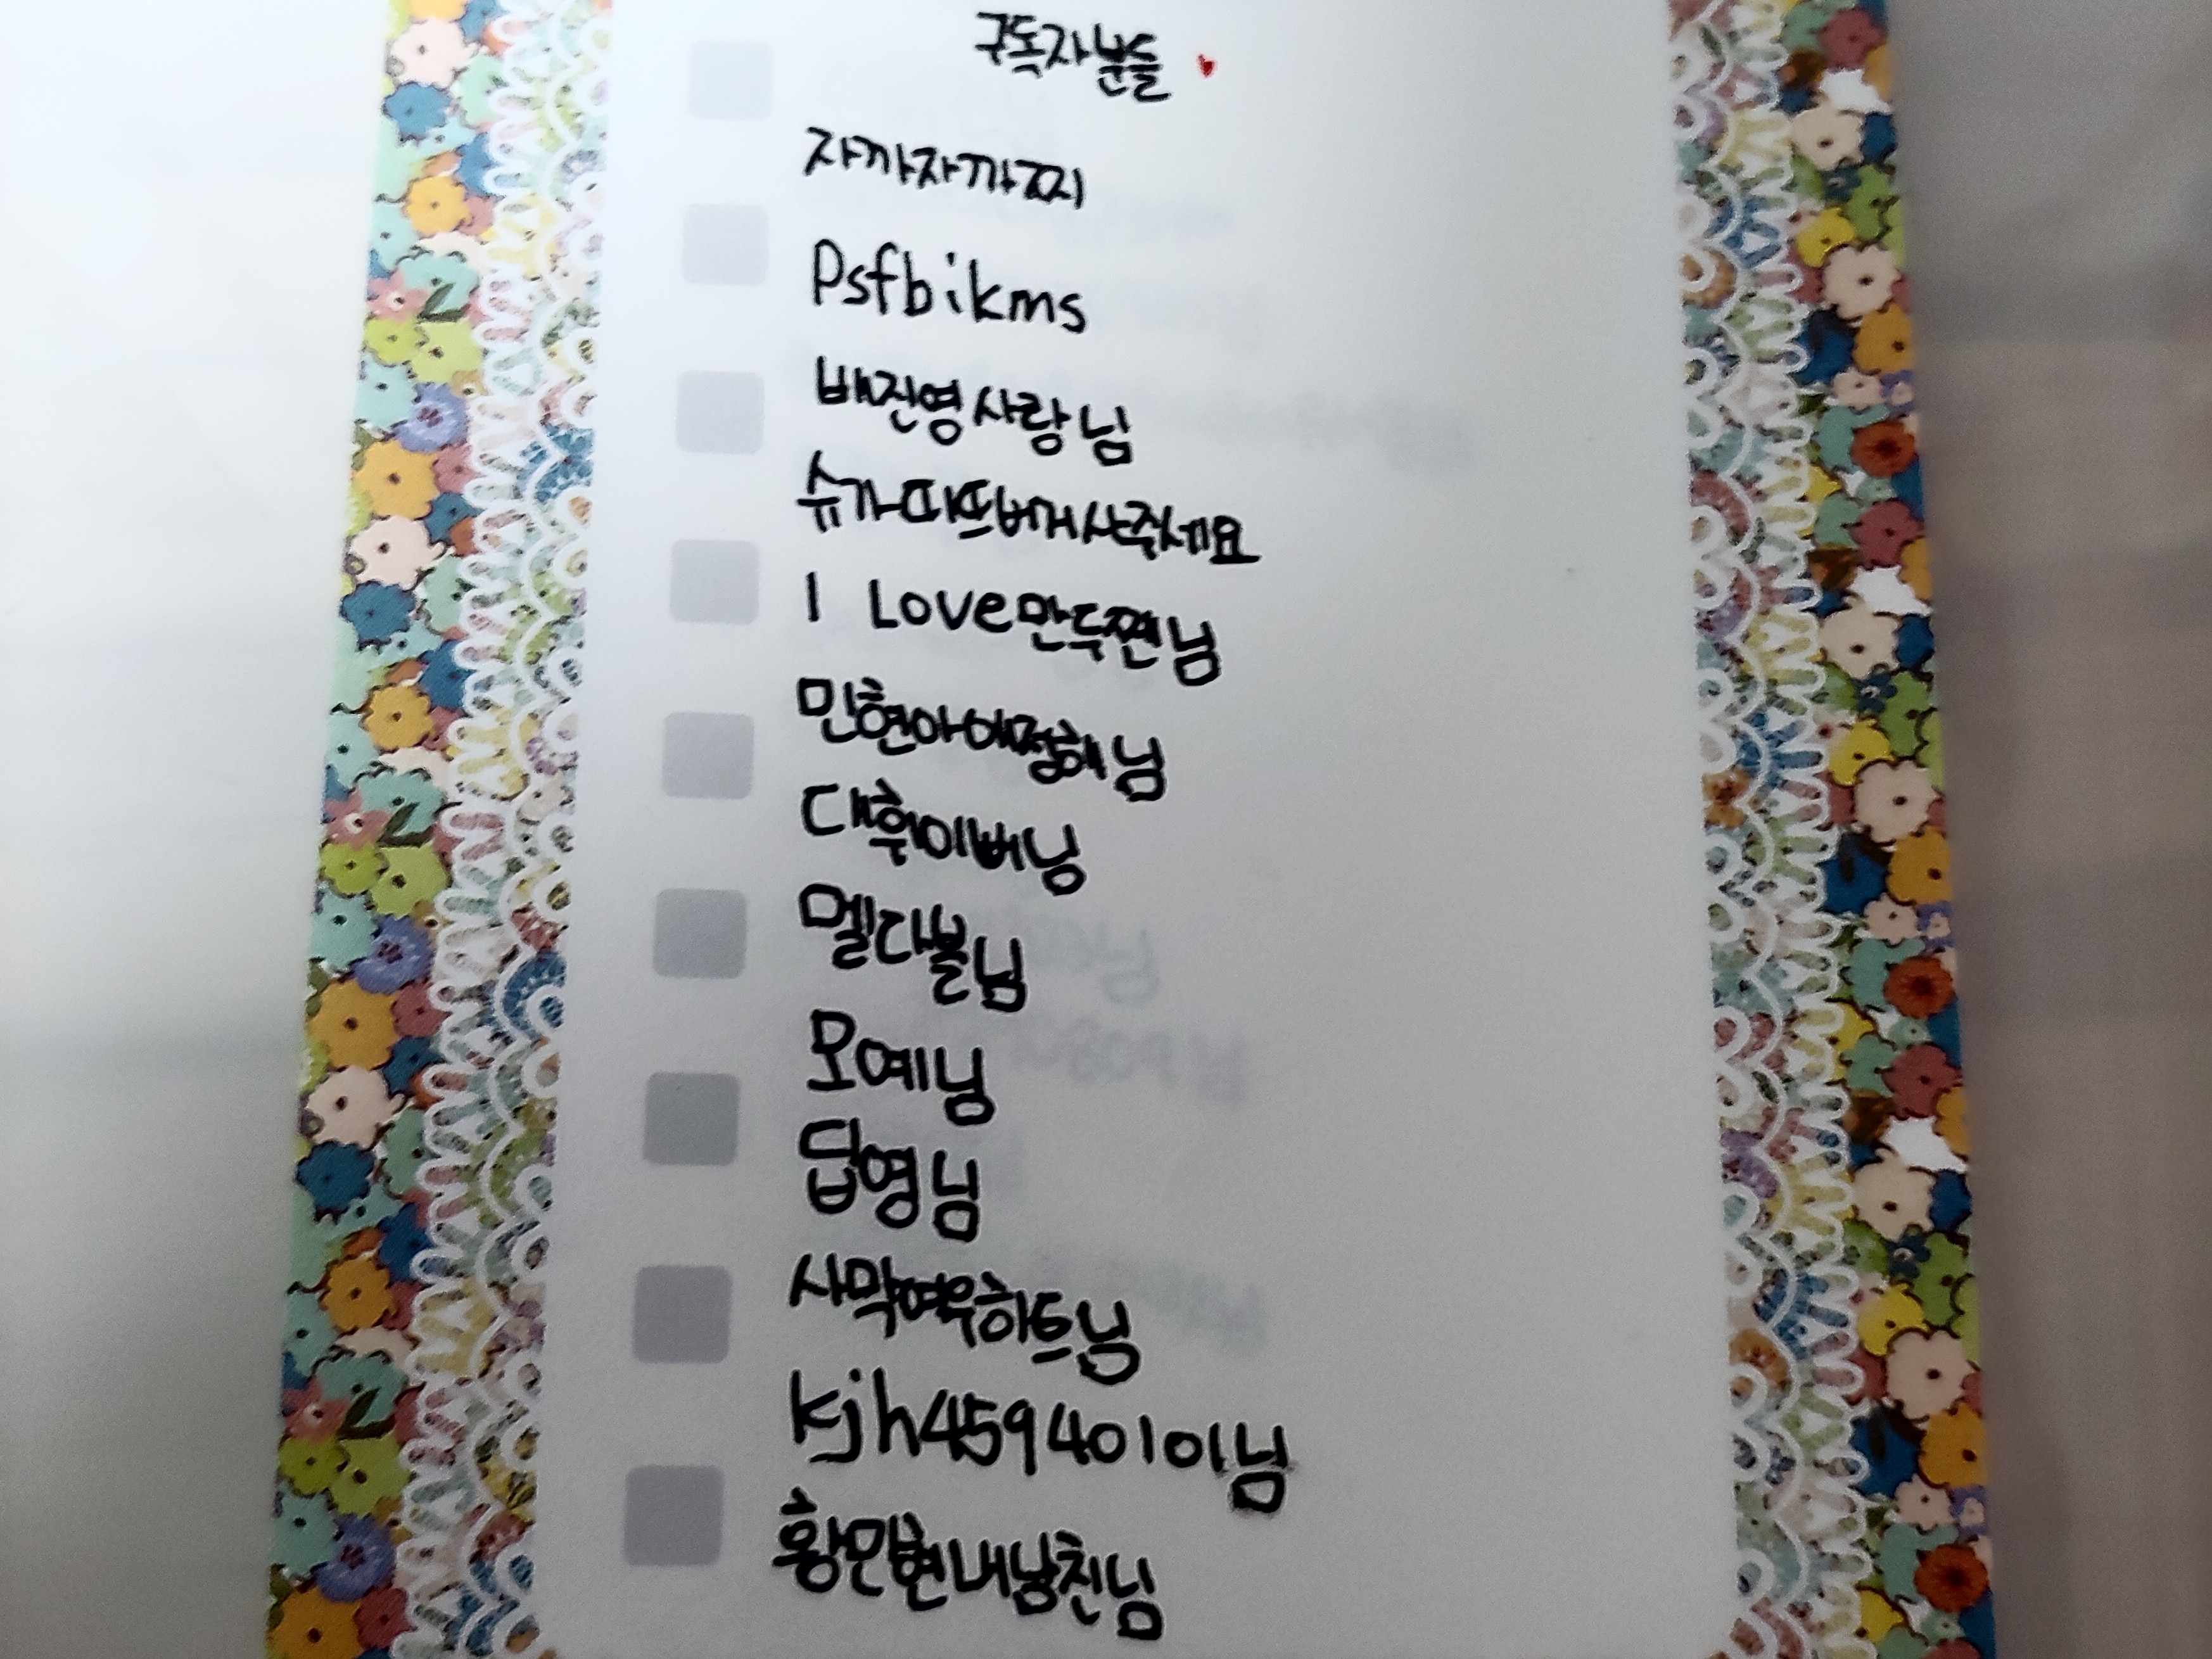 구독자분들
자까자까찌
Psfbikms
배진영사랑님
슈가따뜨버거사주세요
I Love만두쪈님
민현아애정해님
대휘이버님
멜다볼님
모예님
딥영님
사막여우하뜨님
kjh45940101님
황민현내남친님